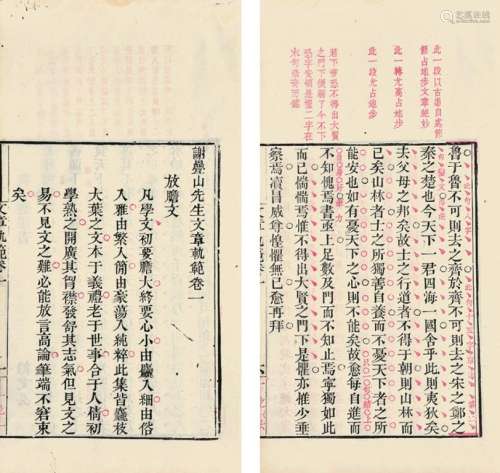 此一段以古道自處節
節占地步文章絕妙
此一轉尤高占地步
此一段尤占地步
若下帝恐不得出大賢
之門下便弱了今不下
恐字安頓是懼二字在
魯于魯不可則去之齊於齊不可則去之宋之鄭之
秦之楚也今天下一君四海一國舍乎此則夷狄矣
去父母之邦矣故士之行道者不得于朝則山林而
已矣山林者士之所獨善自養而不憂天下者之所
能安也如有憂天下之心則不能矣故愈每自進而
不知愧焉書亟上足數及門而不知止焉寧獨如此
而已惴惴焉惟不得出大賢之門下是懼亦惟少垂
察焉瀆冒威尊惶懼無已愈再拜
謝疊山先生文章軌範卷一
放膽文
凡學文初要膽大終要心小由麤入細由俗
入雅由繁入簡由豪蕩入純粹此集皆麤枝
大葉之文本于義禮老于世事合于人情初
學熟之開廣其胷襟發舒其志氣但見文之
易不見文之難必能放言高論筆端不窘束
矣
文章軌範卷一